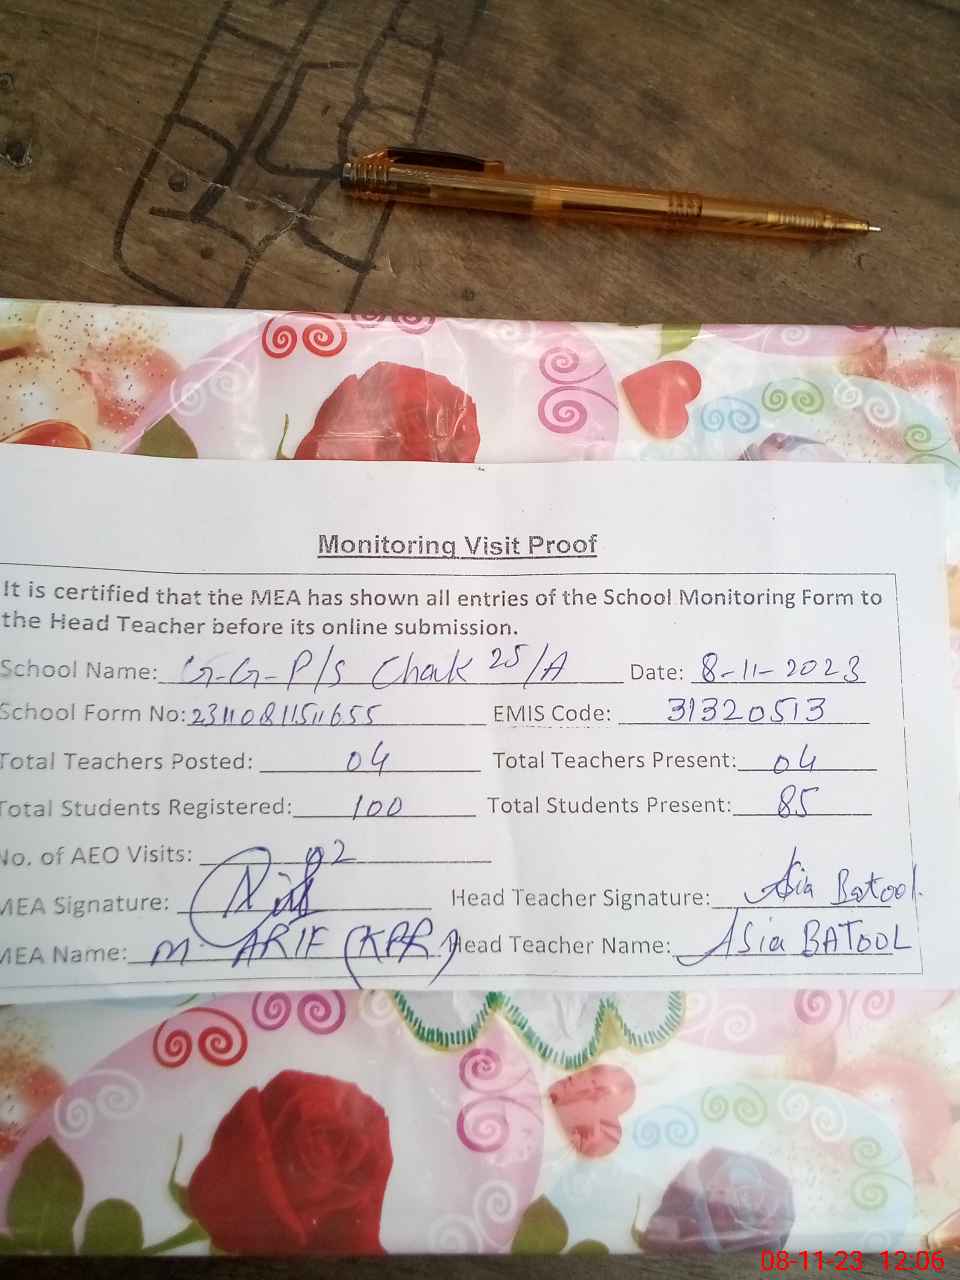 Monitoring Visit Proof
It is certified that the MEA has shown all entries of the School Monitoring Form to
the Head Teacher before its online submission.
School Name: G-G-P/S Chak 25/A Date: 8-11-2023
School Form No: 23110811511655 EMIS Code: 31320513
Total Teachers Posted: 04 Total Teachers Present: 04
Total Students Registered: 100 Total Students Present: 85
No. of AEO Visits: 02
MEA Signature: Head Teacher Signature: Asia Batool.
MEA Name: M. ARIF (KPR) Head Teacher Name: ASia BATOOL
08-11-23 12:06